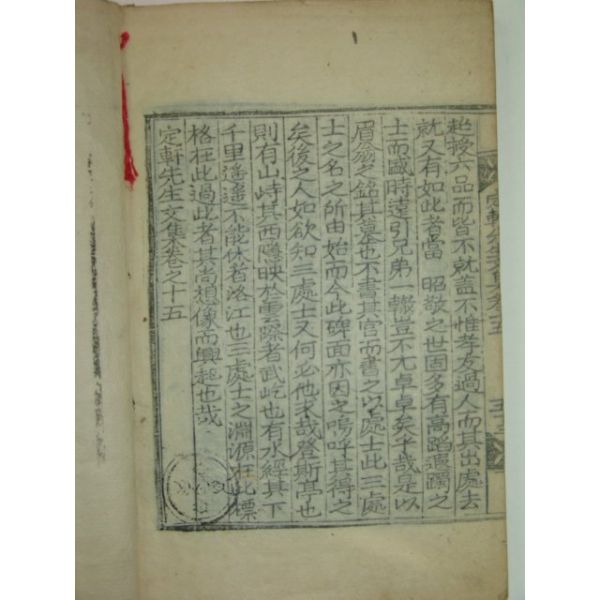 超授六品而皆不就盖不惟孝友過人而其出處去
就又有如此者當 昭敬之世固多有高蹈遐躅之
士而感時遠引兄弟一轍豈不尤卓卓矣乎哉是以
眉翁之銘其墓也不書其官而書之以處士此三處
士之名之所由始而今此碑面亦因之嗚呼其得之
矣後之人如欲知三處士又何必他求哉登斯亭也
則有山峙其西隱映於雲際者武屹也有水經其下
千里遥遥不能休者洛江也三處士之淵源在此標
格在此過此者其尚想像而興起也哉
定軒先生文集卷之十五